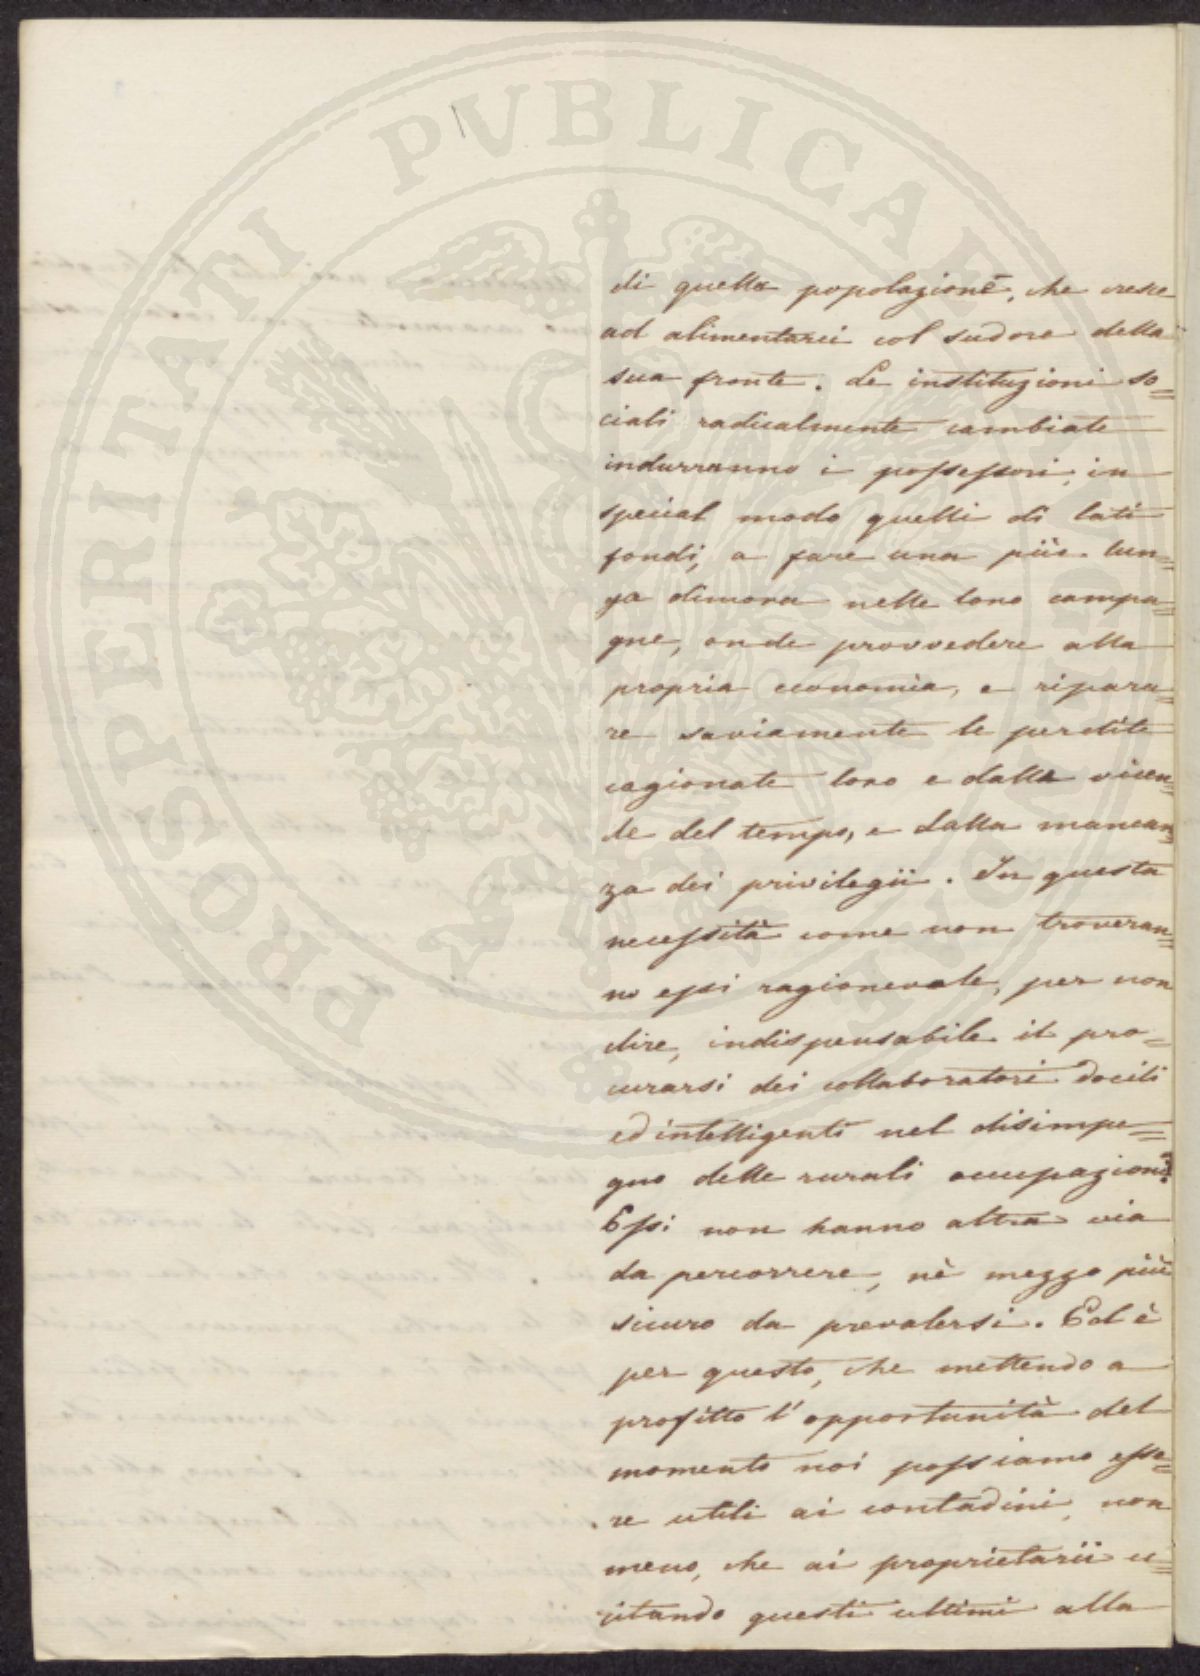 PROSPERITATI PVBLICAE
di quella popolazione, che cresce
ad alimentarci col sudore della
sua fronte. Le instituzioni so=
ciali radicalmente cambiate
indurranno i possessori, in
special modo quelli di lati
fondi, a fare una più lun=
ga dimora nelle loro campa=
gne, onde provvedere alla
propria economia, e ripara=
re saviamente le perdite
cagionate loro e dalle vicen=
de del tempo, e dalla mancan=
za dei privilegii. In questa
necessità come non troveran=
no essi ragionevole, per non
dire, indispensabile il pro=
curarsi dei collaboratori docili
ed intelligenti nel disimpe=
gno delle rurali occupazioni?
Essi non hanno altra via
da percorrere, nè mezzo più
sicuro da prevalersi. Ed è
per questo, che mettendo a
profitto l'opportunità del
momento noi possiamo esse=
re utili ai contadini, non
meno, che ai proprietarii ec=
citando questi ultimi alla